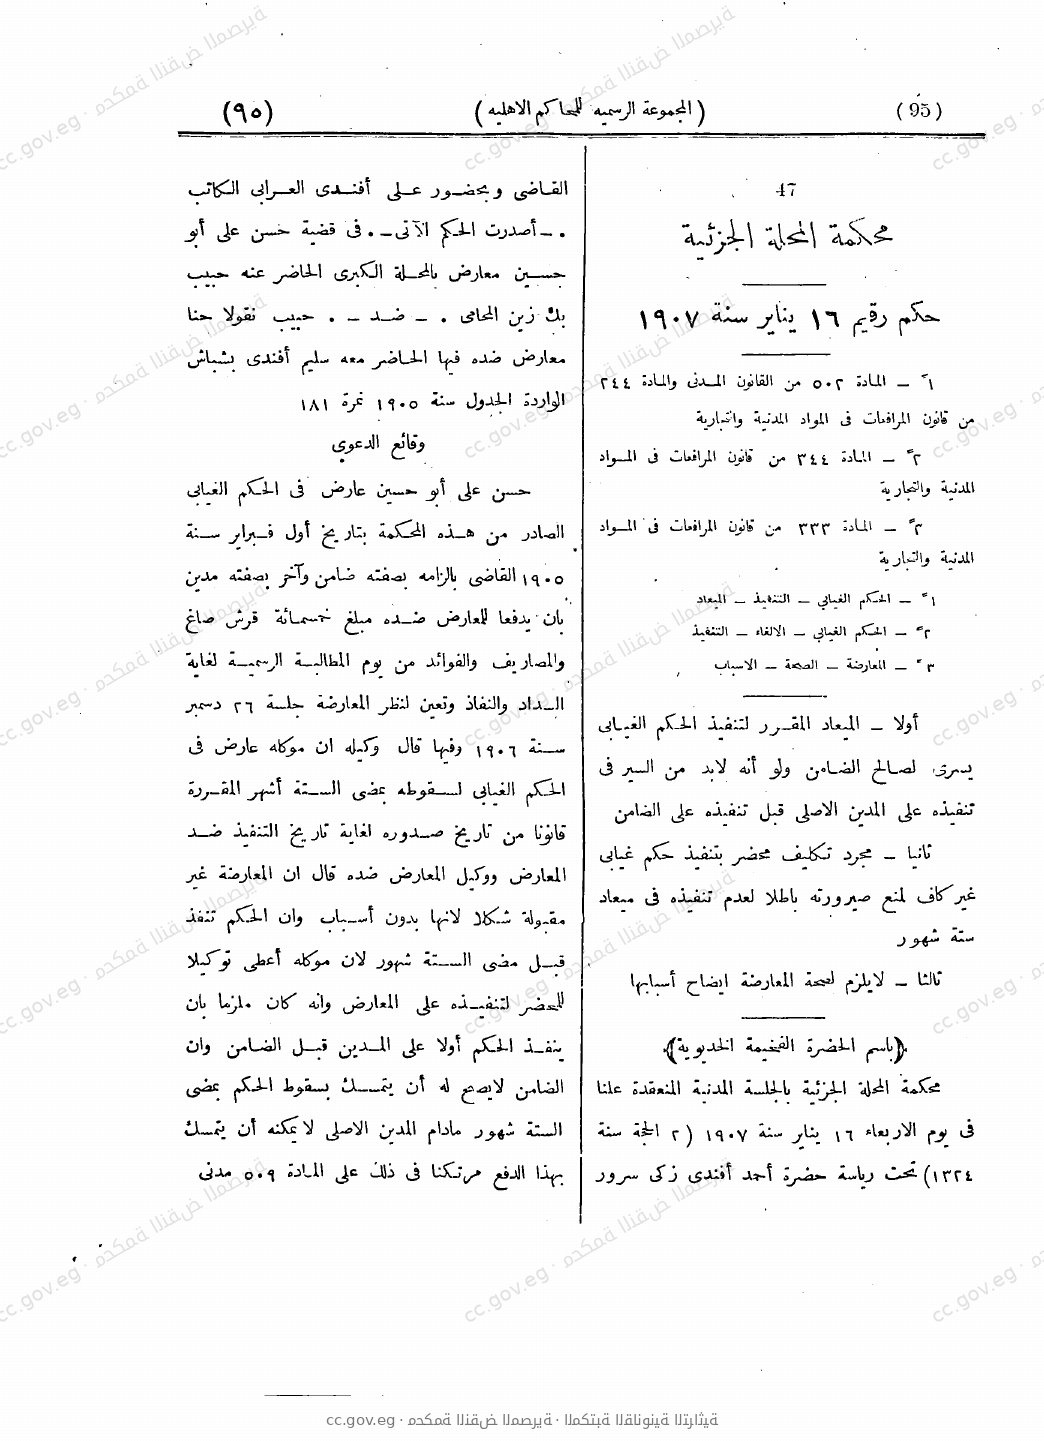 (95)
(المجموعة الرسمية للمحاكم الاهلية)
(٩٥)
47
محكمة المحلة الجزئية
حكم رقيم ١٦ يناير سنة ١٩٠٧
١ً – المادة ٥٠٢ من القانون المدنى والمادة ٢٤٤
من قانون المرافعات فى المواد المدنية والتجارية
٢ً – المادة ٣٤٤ من قانون المرافعات فى المواد
المدنية والتجارية
٣ً – المادة ٣٣٣ من قانون المرافعات فى المواد
المدنية والتجارية
١ً – الحكم الغيابي – التنفيذ – الميعاد
٢ً – الحكم الغيابي – الالغاء – التنفيذ
٣ً – المعارضة – الصحة – الاسباب
أولا – الميعاد المقرر لتنفيذ الحكم الغيابى
يسرى لصالح الضامن ولو أنه لابد من السير فى
تنفيذه على المدين الاصلى قبل تنفيذه على الضامن
ثانيا – مجرد تكليف محضر بتنفيذ حكم غيابى
غير كاف لمنع صيرورته باطلا لعدم تنفيذه فى ميعاد
ستة شهور
ثالثا – لايلزم لصحة المعارضة ايضاح أسبابها
(باسم الحضرة الفخيمة الخديوية)
محكمة المحلة الجزئية بالجلسة المدنية المنعقدة علنا
فى يوم الاربعاء ١٦ يناير سنة ١٩٠٧ (٢ الحجة سنة
١٣٢٤) تحت رياسة حضرة أحمد أفندى زكى سرور
القاضى وبحضور على أفندى العرابى الكاتب
.–أصدرت الحكم الآتى–. فى قضية حسن على أبو
حسين معارض بالمحلة الكبرى الحاضر عنه حبيب
بك زين المحامى . – ضد – . حبيب نقولا حنا
معارض ضده فيها الحاضر معه سليم أفندى بشباش
الواردة الجدول سنة ١٩٠٥ نمرة ١٨١
وقائع الدعوي
حسن على أبو حسين عارض فى الحكم الغيابى
الصادر من هذه المحكمة بتاريخ أول فبراير سنة
١٩٠٥ القاضى بالزامه بصفته ضامن وآخر بصفته مدين
بان يدفعا للمعارض ضده مبلغ خمسمائة قرش صاغ
والمصاريف والفوائد من يوم المطالبة الرسمية لغاية
السداد والنفاذ وتعين لنظر المعارضة جلسة ٢٦ دسمبر
سنة ١٩٠٦ وفيها قال وكيله ان موكله عارض فى
الحكم الغيابى لسقوطه بمضى الستة أشهر المقررة
قانونا من تاريخ صدوره لغاية تاريخ التنفيذ ضد
المعارض ووكيل المعارض ضده قال ان المعارضة غير
مقبولة شكلا لانها بدون أسباب وان الحكم تنفذ
قبل مضى الستة شهور لان موكله أعطى توكيلا
للمحضر لتنفيذه على المعارض وانه كان ملزما بان
ينفذ الحكم أولا على المدين قبل الضامن وان
الضامن لايصح له أن يتمسك بسقوط الحكم بمضى
الستة شهور مادام المدين الاصلى لايمكنه أن يتمسك
بهذا الدفع مرتكنا فى ذلك على المادة ٥٠٩ مدنى
cc.gov.eg · محكمة النقض المصرية · المكتبة القانونية التراثية